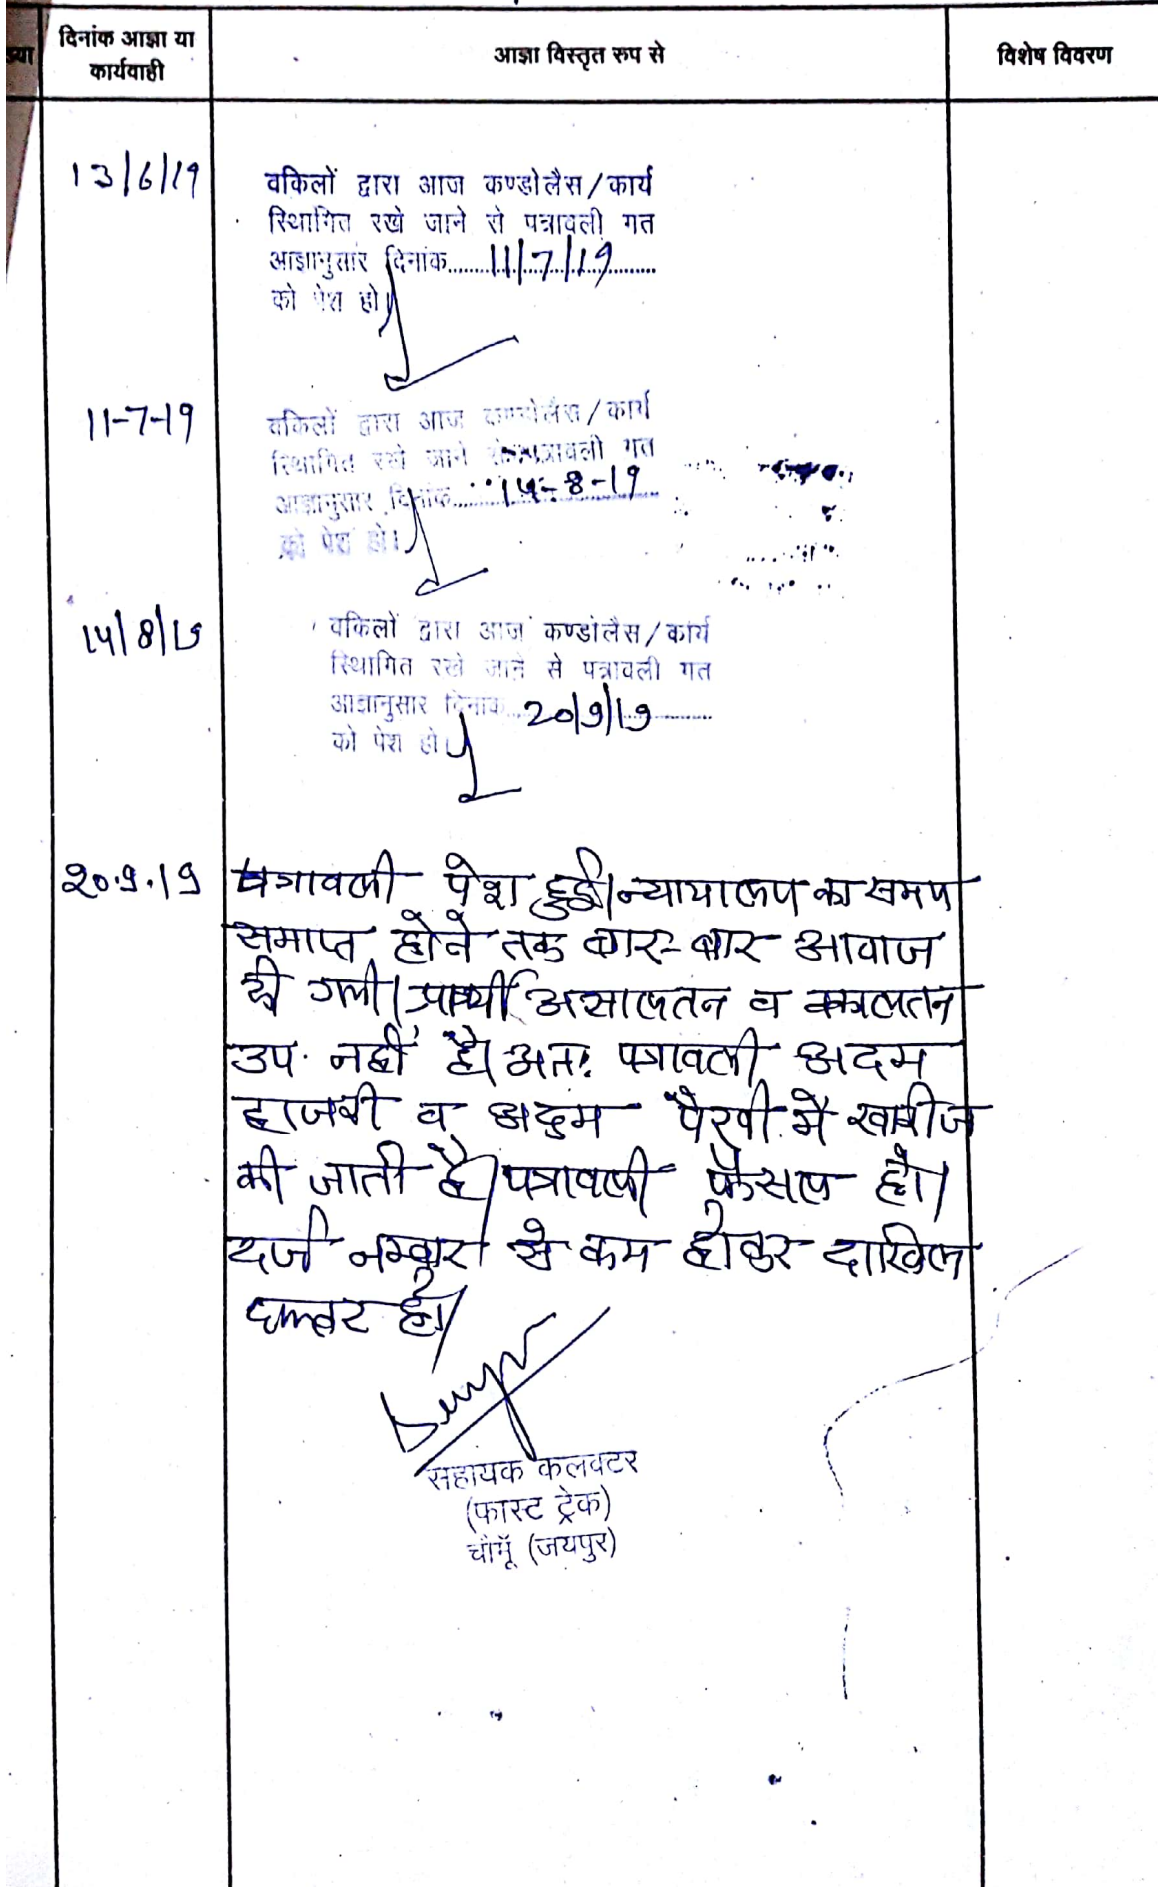 दिनांक आज्ञा या
कार्यवाही
आज्ञा विस्तृत रुप से
विशेष विवरण
13/6/19
वकिलों द्वारा आज कण्डोलैस/कार्य
स्थिागित रखे जाने से पत्रावली गत
आज्ञानुसार दिनांक.......11/7/19.......
को पेश हो।
11-7-19
वकिलों द्वारा आज कण्डोलैस/कार्य
स्थिागित रखे जाने से पत्रावली गत
आज्ञानुसार दिनांक.......14-8-19.......
को पेश हो।
14/8/19
वकिलों द्वारा आज कण्डोलैस/कार्य
स्थिागित रखे जाने से पत्रावली गत
आज्ञानुसार दिनांक...20/9/19.......
को पेश हो।
20.9.19
पत्रावली पेश हुई। न्यायालय का समय
समाप्त होने तक बार-बार आवाज
दी गयी। प्रार्थी असालतन व वकालतन
उप. नहीं है। अतः पत्रावली अदम
हाजरी व अदम पैरवी में खारीज
की जाती है। पत्रावली फैसल हो।
दर्ज नम्बर से कम होकर दाखिल
दफ्तर हो।
सहायक कलक्टर
(फास्ट ट्रेक)
चौमूँ (जयपुर)